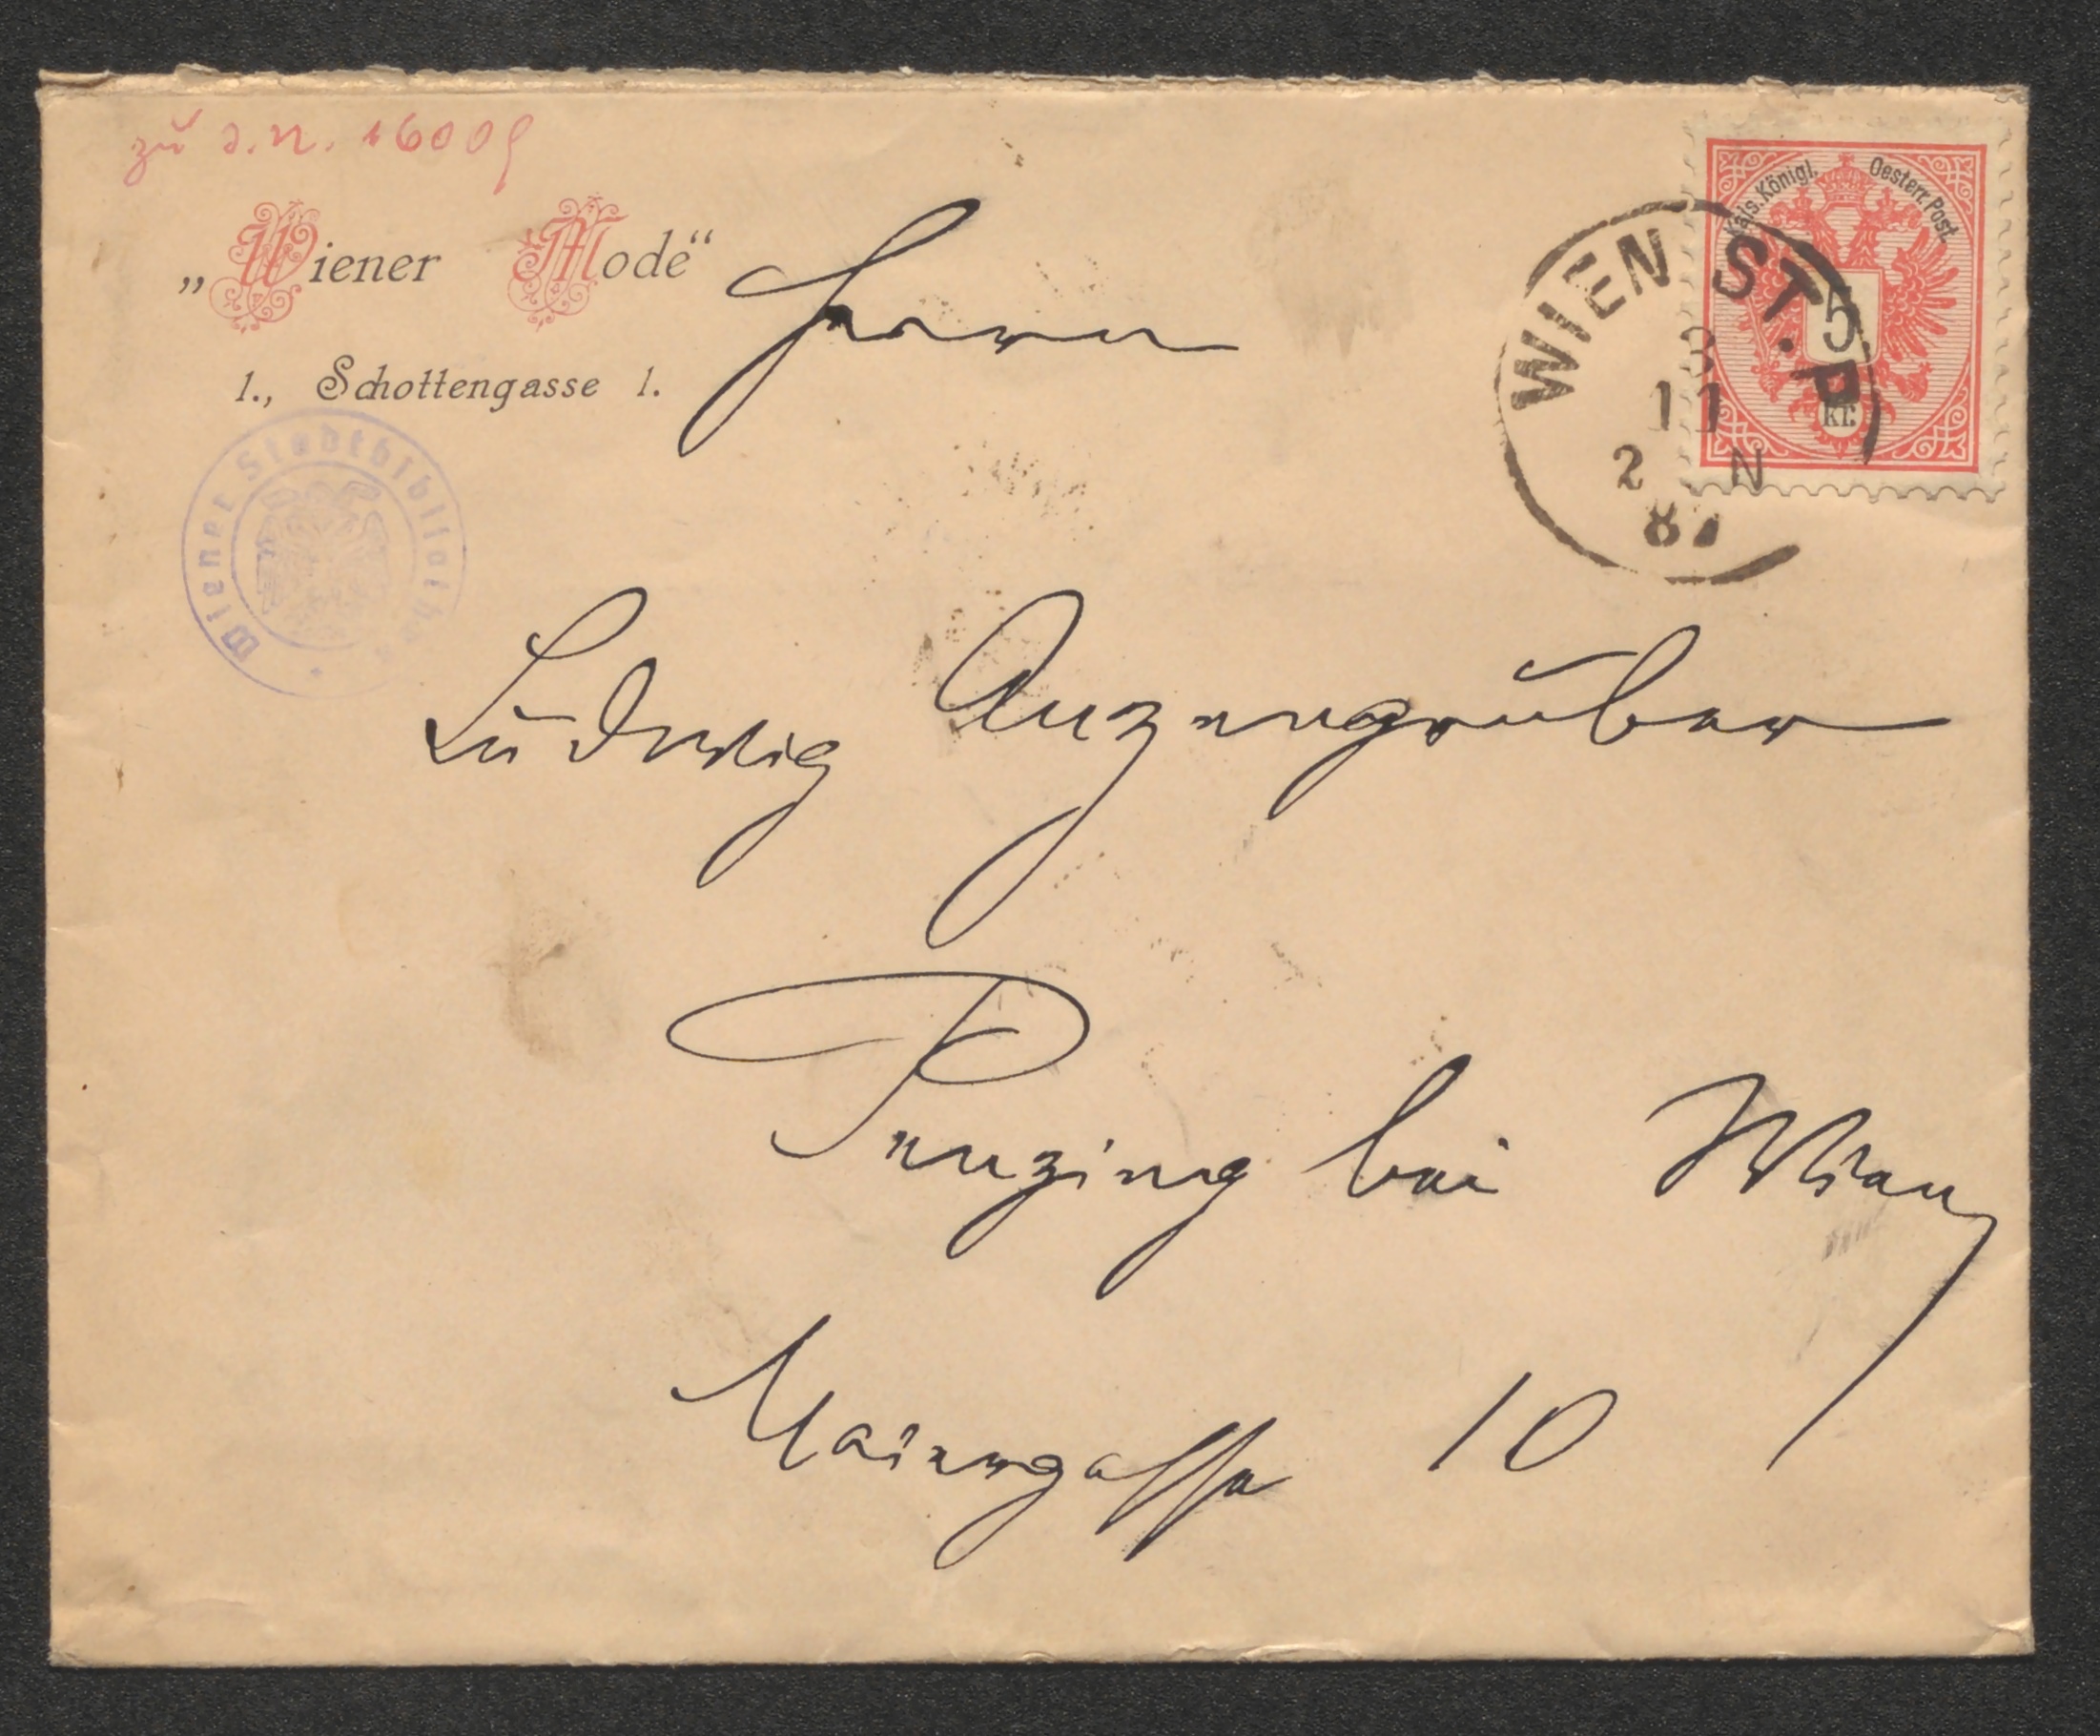 zu I.N. 16009
„Wiener Mode“
1., Schottengasse 1.
Wiener Stadtbibliothek
Kais. Königl. Oesterr. Post.
5
kr.
WIEN ST. P
3
11
2 N
87
Herrn
Ludwig Anzengruber
Penzing bei Wien
Maiergasse 10